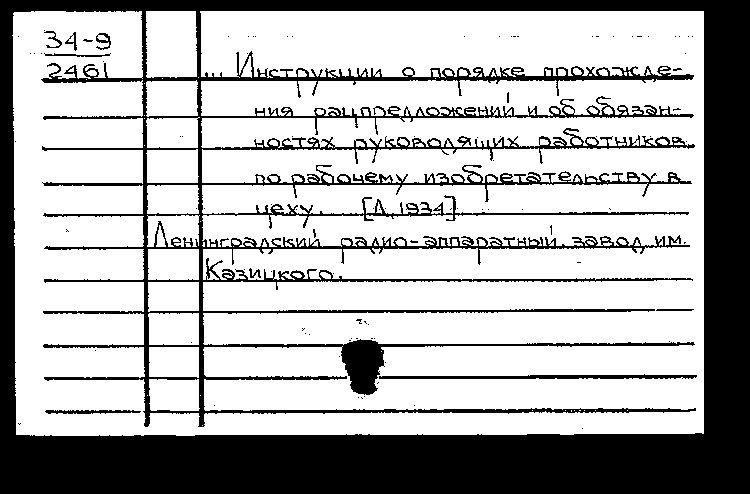 34-9
2461
... Инструкции о порядке прохожде-
ния рацпредложений и об обязан-
ностях руководящих работников
по рабочему изобретательству в
цеху. [Л, 1934]
Ленинградский радио-аппаратный завод им.
Казицкого.